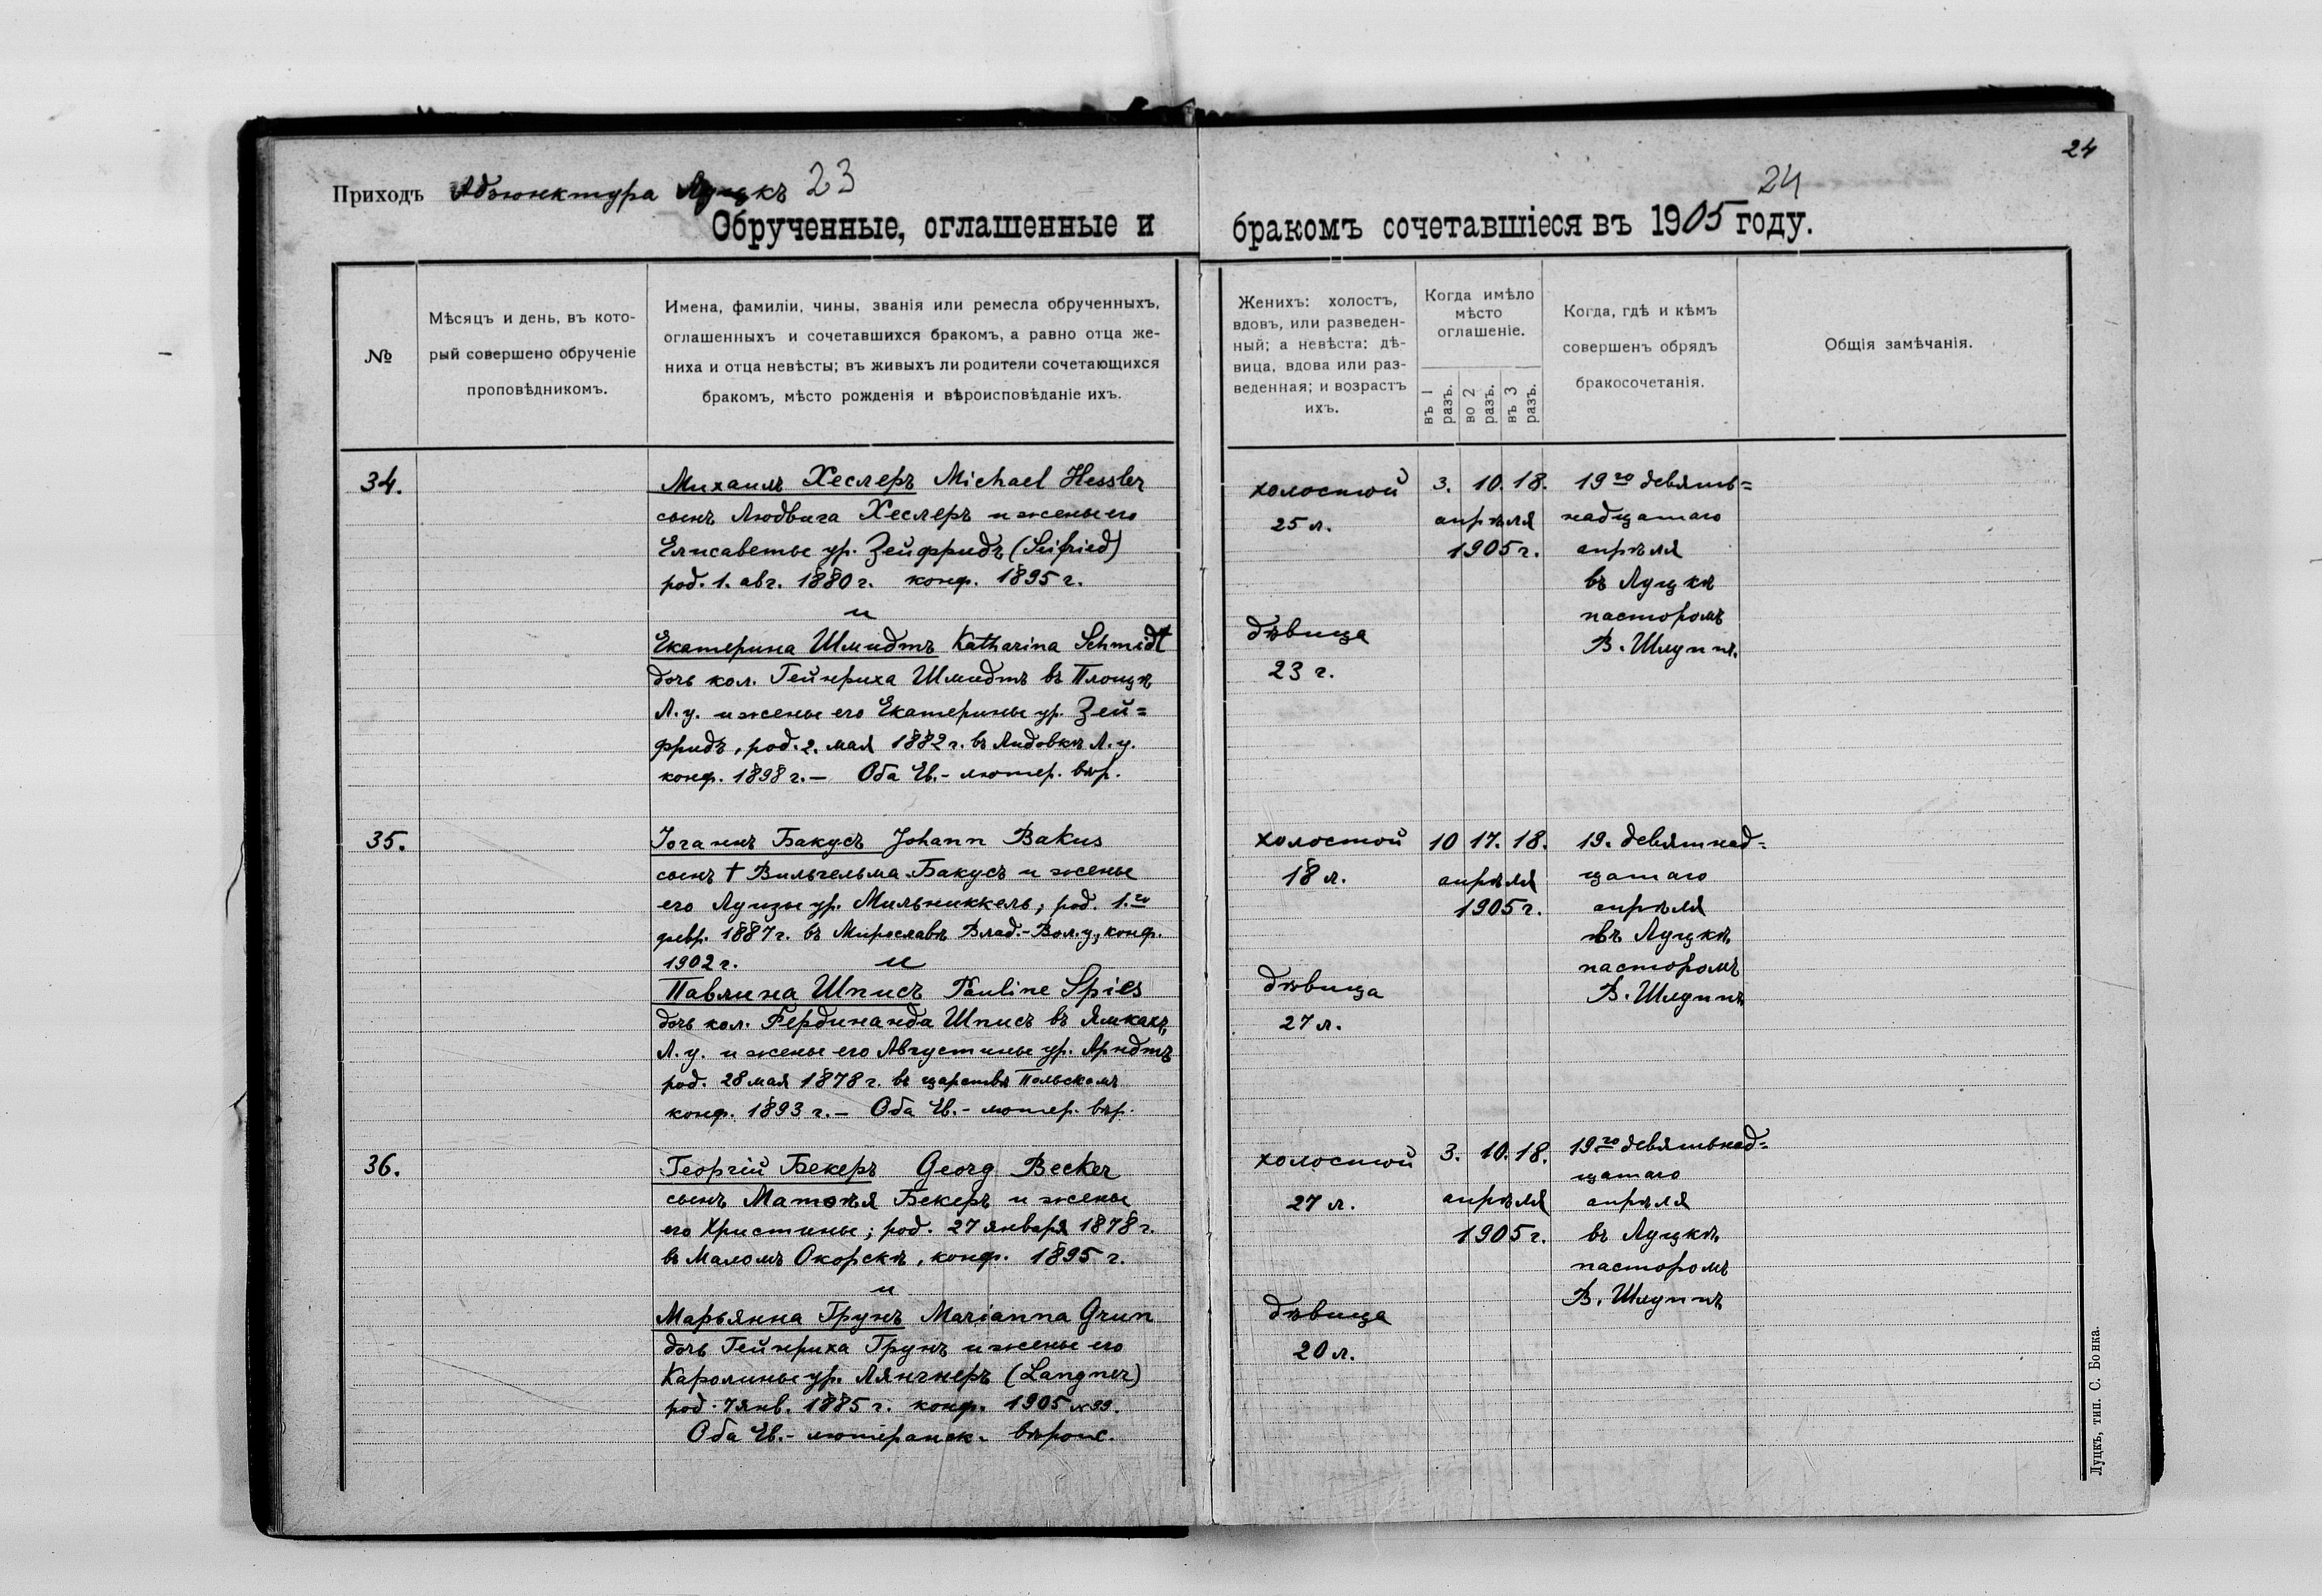 24
Приходъ Адъюнктура Луцкъ 23
24
Обрученные, оглашенные и бракомъ сочетавшіеся въ 1905 году.
№
Мѣсяцъ и день, въ кото-
рый совершено обрученіе
проповѣдникомъ.
Имена, фамиліи, чины, званія или ремесла обрученныхъ,
оглашенныхъ и сочетавшихся бракомъ, а равно отца же-
ниха и отца невѣсты; въ живыхъ ли родители сочетающихся
бракомъ, мѣсто рожденія и вѣроисповѣданіе ихъ.
Женихъ: холостъ,
вдовъ, или разведен-
ный; а невѣста: дѣ-
вица, вдова или раз-
веденная; и возрастъ
ихъ.
Когда имѣло
мѣсто
оглашеніе.
въ 1
разъ.
во 2
разъ.
въ 3
разъ.
Когда, гдѣ и кѣмъ
совершенъ обрядъ
бракосочетанія.
Общія замѣчанія.
34.
Михаилъ Хеслеръ Michael Hessler
сынъ Людвига Хеслеръ и жены его
Елисаветы ур. Зейфридъ (Seifried)
род. 1. авг. 1880 г. конф. 1895 г.
и
Екатерина Шмидтъ Katharina Schmidt
дочь кол. Гейнриха Шмидтъ въ Плоцкѣ
Л. у. и жены его Екатерины ур. Зей=
фридъ, род. 2. мая 1882 г. въ Лидовкѣ Л. у.
конф. 1898 г. – Оба Ев.- лютер. вѣр.
холостой
25 л.
дѣвица
23 г.
3. 10. 18.
апрѣля
1905 г.
19го девять=
надцатаго
апрѣля
въ Луцкѣ
пасторомъ
В. Шлуппъ.
35.
Іоганнъ Бакусъ Johann Bakus
сынъ † Вильгельма Бакусъ и жены
его Луизы ур. Мильниккель; род. 1.го
февр. 1887 г. въ Мирославѣ Влад.-Вол. у., конф.
1902 г. и
Павлина Шписъ Pauline Spies
дочь кол. Фердинанда Шписъ въ Ямкахъ,
Л. у. и жены его Августины ур. Арндтъ
род. 28 мая 1878 г. въ царствѣ Польскомъ
конф. 1893 г. – Оба Ев.- лютер. вѣр.
холостой
18 л.
дѣвица
27 л.
10 17. 18.
апрѣля
1905 г.
19. девятнад=
цатаго
апрѣля
въ Луцкѣ
пасторомъ
В. Шлуппъ
36.
Георгій Бекеръ Georg Becker
сынъ Матѳѣя Бекеръ и жены
его Христины; род. 27 января 1878 г.
въ Маломъ Окорскѣ, конф. 1895 г.
и
Марьянна Грунъ Marianna Grun
дочь Гейнриха Грунъ и жены его
Каролины ур. Лянгнеръ (Langner)
род. 7 янв. 1885 г. конф. 1905 № 99.
Оба Ев.- лютеранск. вѣроис.
холостой
27 л.
дѣвица
20 л.
3. 10. 18.
апрѣля
1905 г.
19го девятьнад=
цатаго
апрѣля
въ Луцкѣ
пасторомъ
В. Шлуппъ
Луцкъ, тип. С. Бонка.